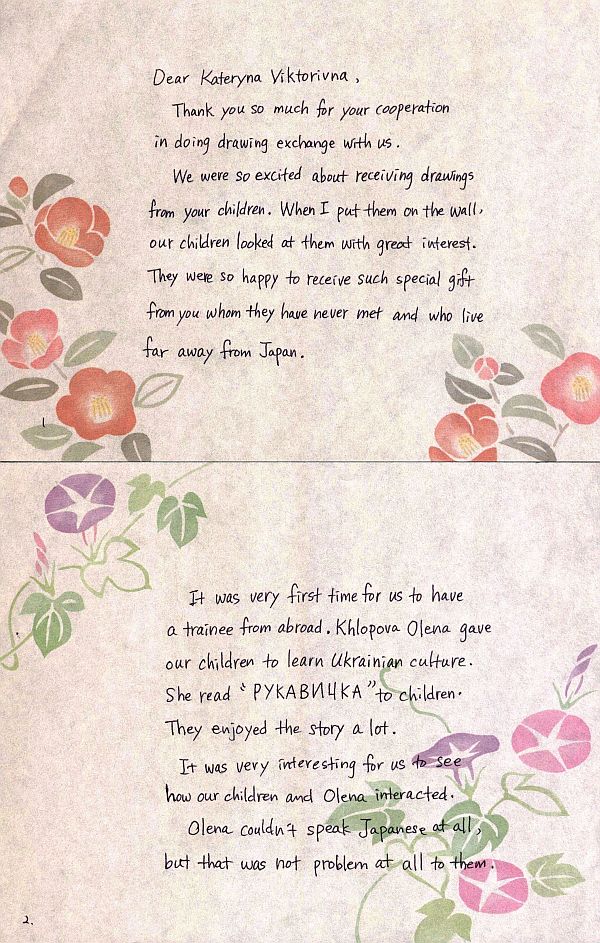 Dear Kateryna Viktorivna,
Thank you so much for your cooperation
in doing drawing exchange with us.
We were so excited about receiving drawings
from your children. When I put them on the wall,
our children looked at them with great interest.
They were so happy to receive such special gift
from you whom they have never met and who live
far away from Japan.
1
It was very first time for us to have
a trainee from abroad. Khlopova Olena gave
our children to learn Ukrainian culture.
She read “РУКАВИЧКА” to children.
They enjoyed the story a lot.
It was very interesting for us to see
how our children and Olena interacted.
Olena couldn't speak Japanese at all,
but that was not problem at all to them.
2.